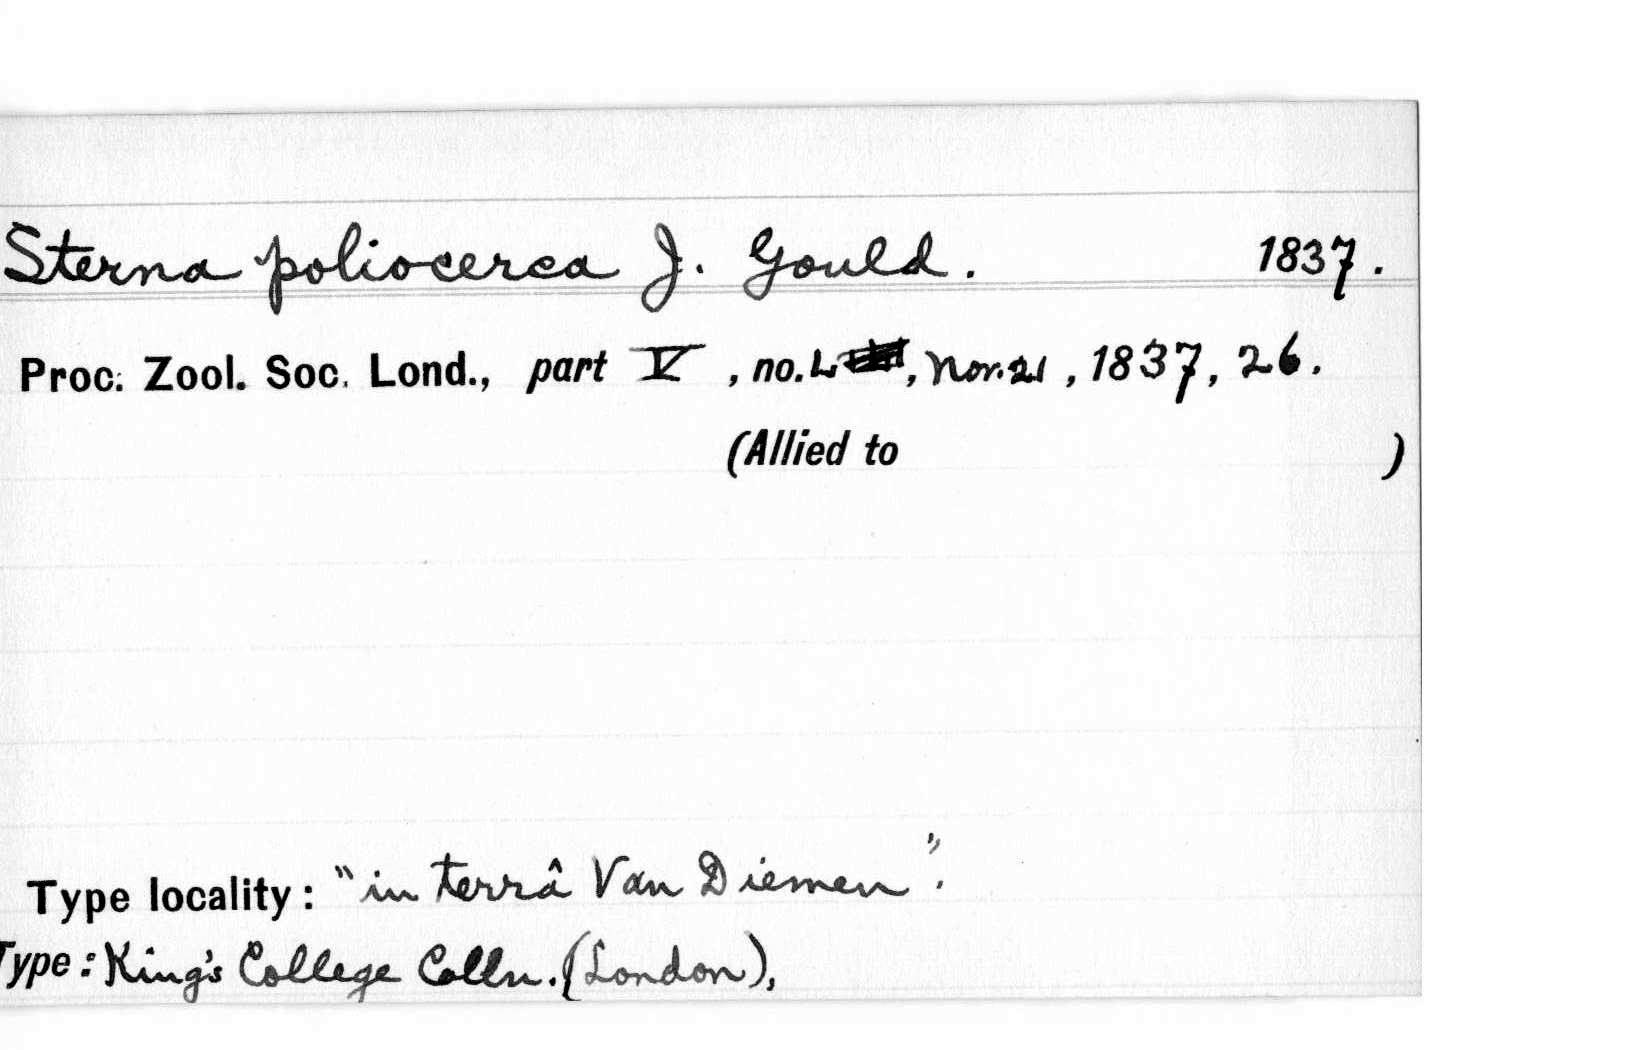 Sterna poliocerca J. Gould. 1837.
Proc. Zool. Soc. Lond., part V, no. L, Nov. 21, 1837, 26.
(Allied to )
Type locality: "in terrâ Van Diemen".
Type: King's College Colln. (London),